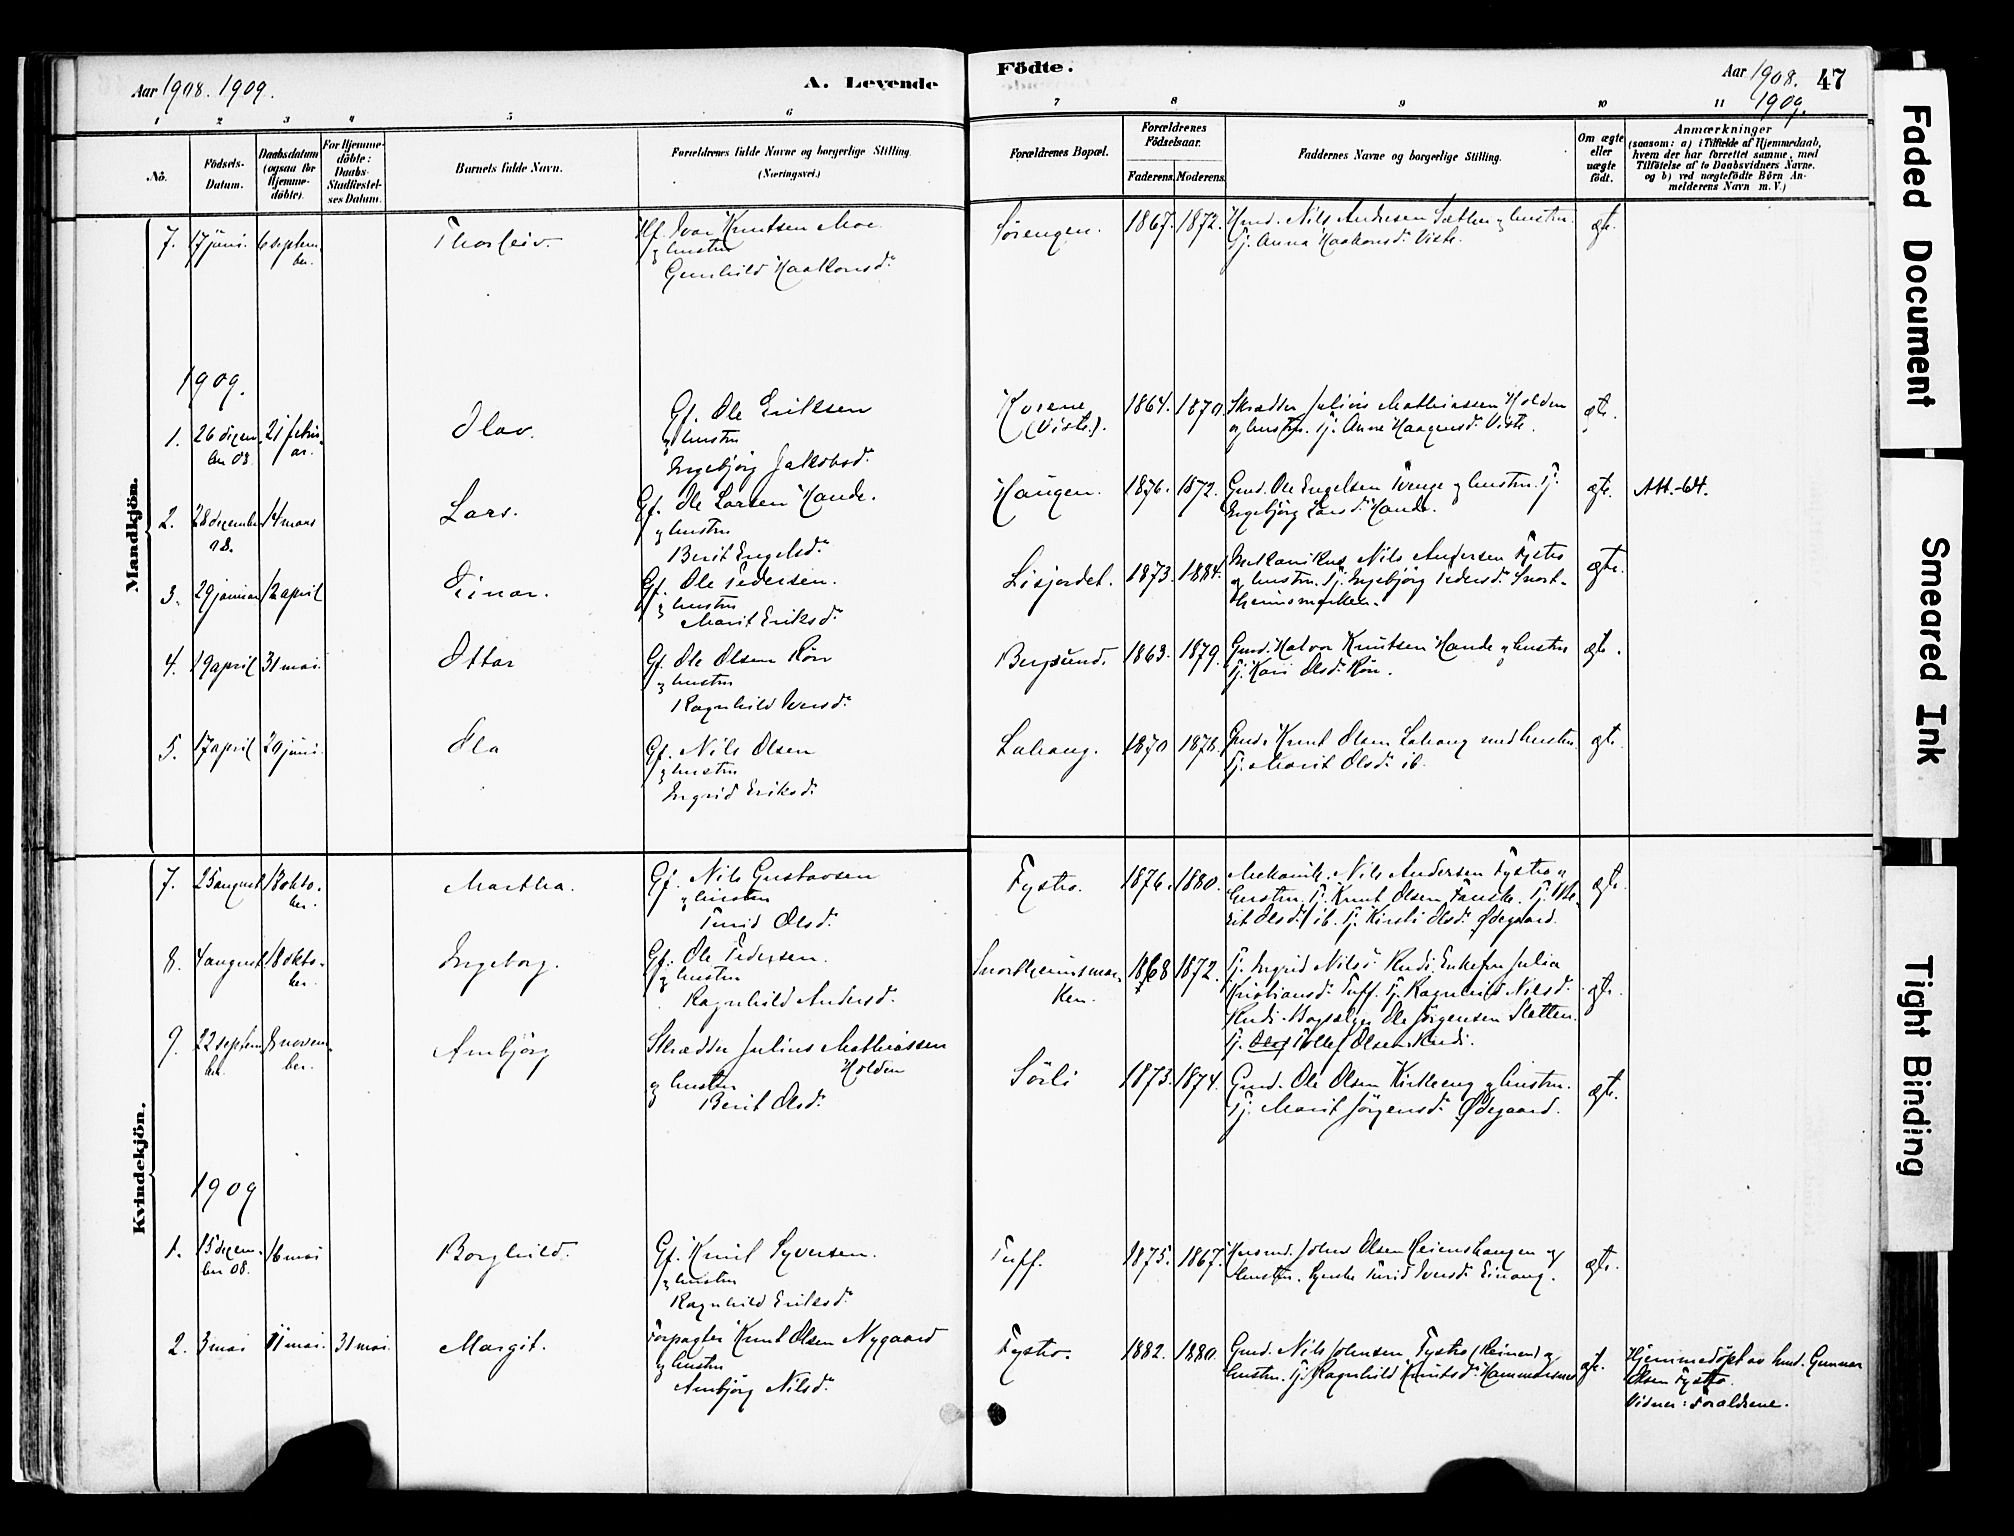 Aar 1908. 1909.
A. Levende
Födte.
Aar 1908. 47
1909.
1 2 3 4 5 6 7 8 9 10 11
No.
Födsels-
Datum.
Daabsdatum
(ogsaa for
Hjemme-
döbte).
For Hjemme-
döbte:
Daabs-
Stadfæstel-
ses Datum.
Barnets fulde Navn.
Forældrenes fulde Navne og borgerlige Stilling.
(Næringsvei.)
Forældrenes Bopæl.
Forældrenes
Födselsaar.
Faderens. Moderens.
Faddernes Navne og borgerlige Stilling.
Om ægte
eller
uægte
født.
Anmærkninger
(saasom: a) i Tilfælde af Hjemmedaab,
hvem der har forrettet samme, med
Tilföielse af to Daabsvidners Navne.
og b) ved uægtefödte Börn An-
melderens Navn m. V.)
Mandkjön.
7. 17 juni. 6 septem
ber.
Thorleiv.
Hf. Ivar Knutsen Moe
og hustru
Gunhild Haakonsd.
Sørengen. 1867. 1872.
Hmd. Nils Andresen Sæthre og hustru.
Tj. Anna Haakonsd. Viste.
ægte.
1909.
1. 26 dezem
ber 08. 21 febru
ar.
Olav.
Gf. Ole Eriksen
og hustru
Ingebjörg Jakobsd.
Korene
(Viste). 1864. 1870
Skrædder Julius Mathiassen Holden
og hustru. Tj. Anne Haagensd. Viste.
ægte.
2. 28 dezember
08. 14 mars
Lars.
Gf. Ole Larsen Hande.
og hustru
Berit Engelsd.
Haugen. 1876. 1872.
Gmd. Ole Engelsen Tvenge og hustru. Tj.
Ingebjörg Larsd. Hande.
ægte. Att.-64.
3. 29 januar 12 april
Einar.
Gf. Ole Pedersen.
og hustru
Marit Eriksd.
Lisjordet. 1873. 1884.
Mekanikus Nils Andersen Fystro
og hustru. Tj. Ingebjörg Pedersd. Snort-
heimsmarken.
ægte.
4. 19 april 31 mai.
Ottar
Gf. Ole Olsen Røn
og hustru
Ragnhild Iversd.
Bergsund. 1863. 1879.
Gmd. Halvor Knutsen Hande og hustru
Tj. Kari Olsd. Røn.
ægte.
5. 17 april 20 juni.
Ola
Gf. Nils Olsen
og hustru
Ingrid Eriksd.
Lohaug. 1870 1878.
Gmd. Knut Olsen Lohaug med hustru
Tj. Marit Olsd. ib.
ægte.
Kvindekjön.
7. 25 august 18 okto-
ber.
Martha.
Gf. Nils Gustavsen
og hustru
Turid Olsd.
Fystro. 1876. 1880.
Mekanik. Nils Andersen Fystro og
hustru. Tj. Knut Olsen Fauske. Tj.
Olsd. ib. Tj. Kirsti Olsd. Ødegaard.
ægte.
8. 4 august 18 okto-
ber.
Ingeborg.
Gf. Ole Pedersen.
og hustru
Ragnhild Andersd.
Snortheimsmar-
ken. 1868 1872.
Tj. Ingrid Nilsd. Rudi. Enkefru Julia
Kristiansd. Tuff. Tj. Ragnhild Nilsd.
Rudi. Bogsælger Ole Jörgensen Sletten.
Tj. Tollef Olsen Rudi.
ægte.
9. 22 septem
ber. 8 novem-
ber.
Armbjörg
Skrædder Julius Mathiassen
Holden
og hustru
Berit Olsd.
Sörli 1873. 1874.
Gmd. Ole Olsen Kirkeeng og hustru.
Tj. Marit Jörgensd. Ødegaard.
ægte.
1909
1. 15 dezem-
ber 08. 16 mai
Borghild.
Gf. Knut Syversen.
og hustru
Ragnhild Eriksd.
Tuff. 1875. 1867.
Husmd. Johns Olsen Reienshaugen og
hustru. Turid Iversd. Einang.
ægte.
2. 3 mai 11 mai. 31 mai.
Margit.
Forpagter Knut Olsen Nygaard
og hustru
Armbjörg Nilsd.
Fystro. 1882. 1880.
Gmd. Nils Johnsen Fystro (Reinen) og
hustru. Tj. Ragnhild Knutsd. Hammarsnes
ægte.
Hjemmedöpt av hmd. Gunnar
Olsen Fystro.
Vidner: Forældrene.
Faded Document
Smeared Ink
Tight Binding